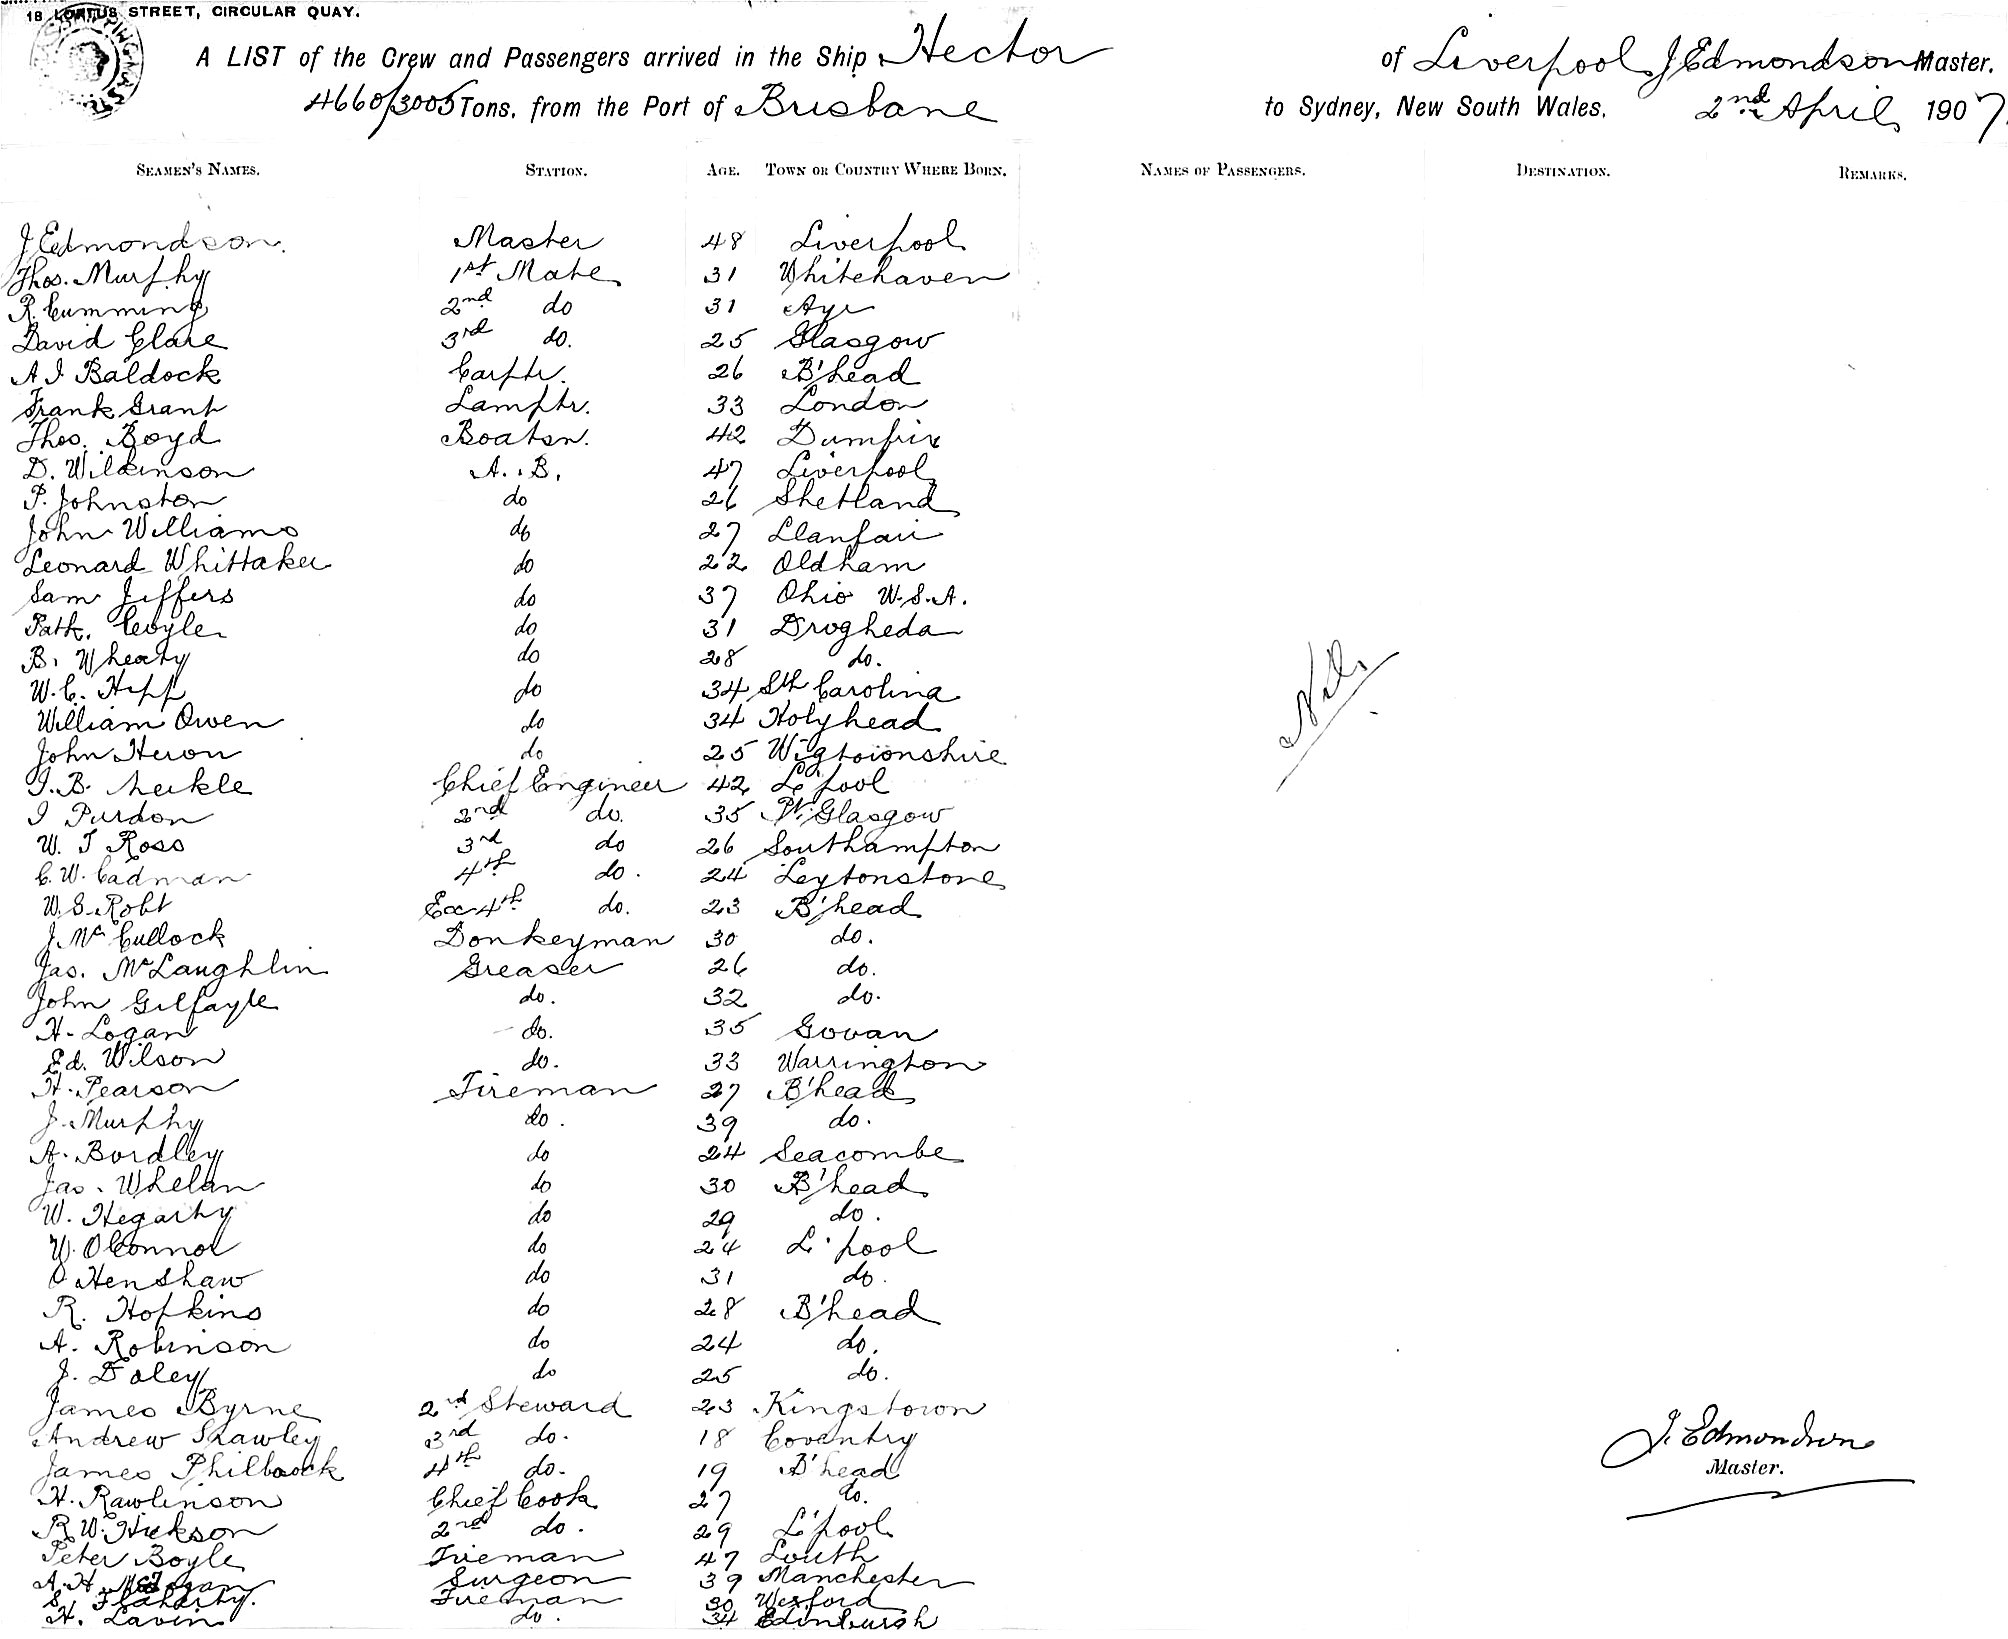 18 LOFTUS STREET, CIRCULAR QUAY.
A LIST of the Crew and Passengers arrived in the Ship Hector of Liverpool, J Edmondson Master.
4660/3005 Tons, from the Port of Brisbane to Sydney, New South Wales, 2nd April 1907.
SEAMEN'S NAMES. STATION. AGE. TOWN OR COUNTRY WHERE BORN. NAMES OF PASSENGERS. DESTINATION. REMARKS.
J Edmondson. Master 48 Liverpool
Thos. Murphy 1st Mate 31 Whitehaven
R. Cumming 2nd do 31 Ayr
David Clare 3rd do. 25 Glasgow
A J Baldock Carptr. 26 B'head
Frank Grant Lamptr. 33 London
Thos. Boyd Boatsn. 42 Dumfrix
D. Wilkinson A.B. 47 Liverpool
P. Johnston do 26 Shetland
John Williams do 27 Llanfair
Leonard Whittaker do 22 Oldham
Sam Jeffers do 37 Ohio U.S.A.
Patk. Coyle do 31 Drogheda
B. Wheaty do 28 do.
W.C. Hipp do 34 Sth Carolina
William Owen do 34 Holyhead
John Heron do 25 Wigtownshire
J.B. Meikle Chief Engineer 42 L'pool
J Purdon 2nd do. 35 Pt. Glasgow
W. J Ross 3rd do 26 Southampton
C.W. Cadman 4th do. 24 Leytonstone
W.S. Robt Ex 4th do. 23 B'head
J. McCullock Donkeyman 30 do.
Jas. McLaughlin Greaser 26 do.
John Gilfayle do. 32 do.
H. Logan do. 35 Govan
Ed. Wilson do. 33 Warrington
H. Pearson Fireman 27 B'head
J. Murphy do. 39 do.
A. Bordley do 24 Seacombe
Jas. Whelan do 30 B'head
W. Hegarty do 29 do.
W. O'Connor do 24 L'pool
O Henshaw do 31 do.
R. Hopkins do 28 B'head
A. Robinson do 24 do.
J. Daley do 25 do.
James Byrne 2nd Steward 23 Kingstown
Andrew Shawley 3rd do. 18 Coventry
James Philbrock 4th do. 19 B'head
H. Rawlinson Chief Cook 27 do.
R.W. Hickson 2nd do. 29 L'pool
Peter Boyle Fireman 47 Louth
A.H. Surgeon 39 Manchester
S. Flaharty. Fireman 30 Wexford
H. Lavin do. 34 Edinburgh
Nil
J. Edmondson
Master.